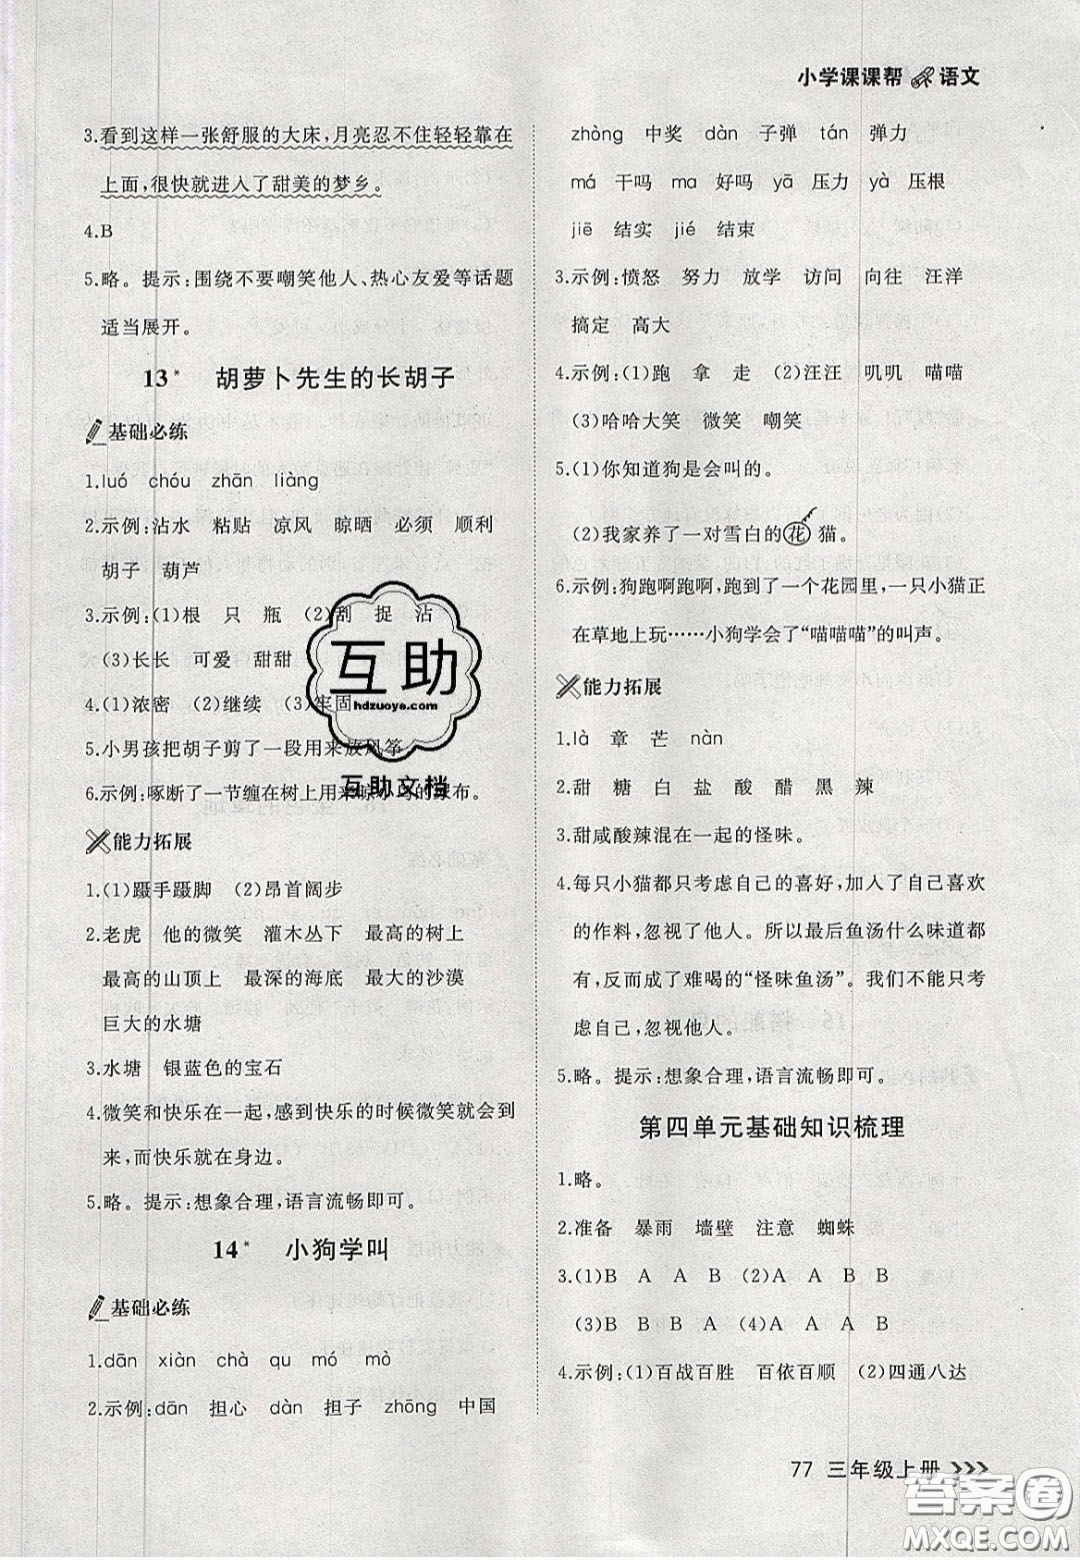 小学课课帮 语文
3.看到这样一张舒服的大床,月亮忍不住轻轻靠在
上面,很快就进入了甜美的梦乡。
4.B
5.略。提示:围绕不要嘲笑他人、热心友爱等话题
适当展开。
13* 胡萝卜先生的长胡子
基础必练
1.luó chóu zhān liàng
2.示例:沾水 粘贴 凉风 晾晒 必须 顺利
胡子 葫芦
3.示例:(1)根 只 瓶 (2)刮 捉 沾
(3)长长 可爱 甜甜
4.(1)浓密 (2)继续 (3)牢固
5.小男孩把胡子剪了一段用来放风筝。
6.示例:啄断了一节缠在树上用来晾小鸟的尿布。
能力拓展
1.(1)蹑手蹑脚 (2)昂首阔步
2.老虎 他的微笑 灌木丛下 最高的树上
最高的山顶上 最深的海底 最大的沙漠
巨大的水塘
3.水塘 银蓝色的宝石
4.微笑和快乐在一起,感到快乐的时候微笑就会到
来,而快乐就在身边。
5.略。提示:想象合理,语言流畅即可。
14* 小狗学叫
基础必练
1.dān xiàn chà qu mó mò
2.示例:dān 担心 dàn 担子 zhōng 中国
zhòng 中奖 dàn 子弹 tán 弹力
má 干吗 ma 好吗 yā 压力 yà 压根
jiē 结实 jié 结束
3.示例:愤怒 努力 放学 访问 向往 汪洋
搞定 高大
4.示例:(1)跑 拿 走 (2)汪汪 叽叽 喵喵
(3)哈哈大笑 微笑 嘲笑
5.(1)你知道狗是会叫的。
(2)我家养了一对雪白的花猫。
6.示例:狗跑啊跑啊,跑到了一个花园里,一只小猫正
在草地上玩……小狗学会了“喵喵喵”的叫声。
能力拓展
1.là 章 芒 nàn
2.甜 糖 白 盐 酸 醋 黑 辣
3.甜咸酸辣混在一起的怪味。
4.每只小猫都只考虑自己的喜好,加入了自己喜欢
的作料,忽视了他人。所以最后鱼汤什么味道都
有,反而成了难喝的“怪味鱼汤”。我们不能只考
虑自己,忽视他人。
5.略。提示:想象合理,语言流畅即可。
第四单元基础知识梳理
1.略。
2.准备 暴雨 墙壁 注意 蜘蛛
3.(1)B A A B (2)A A B B
(3)B B A B (4)A A A B
4.示例:(1)百战百胜 百依百顺 (2)四通八达
77 三年级上册
互助
hdzuoye.com
互助文档
答案圈
MXQE.COM